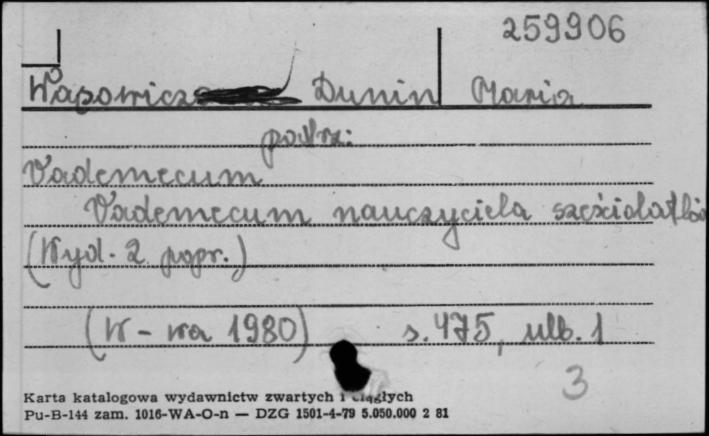 259906
Wąsowicz Dunin Maria
patrz:
Vademecum
Vademecum nauczyciela sześciolatków
(Wyd. 2 popr.)
(W-wa 1980) s. 475, nlb. 1
3
Karta katalogowa wydawnictw zwartych i ciągłych
Pu-B-144 zam. 1016-WA-O-n — DZG 1501-4-79 5.050.000 2 81